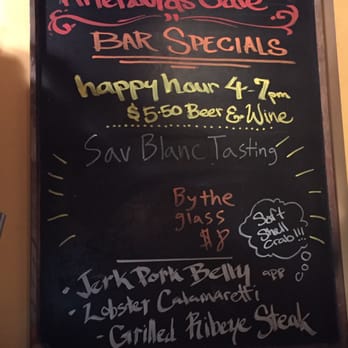 Cafe
BAR SPECIALS
happy hour 4-7pm
$5.50 Beer & Wine
Sav Blanc Tasting
By the
glass
$8
Soft
Shell
Crab!!!
• Jerk Pork Belly app
• Lobster Calamaretti
- Grilled Ribeye Steak